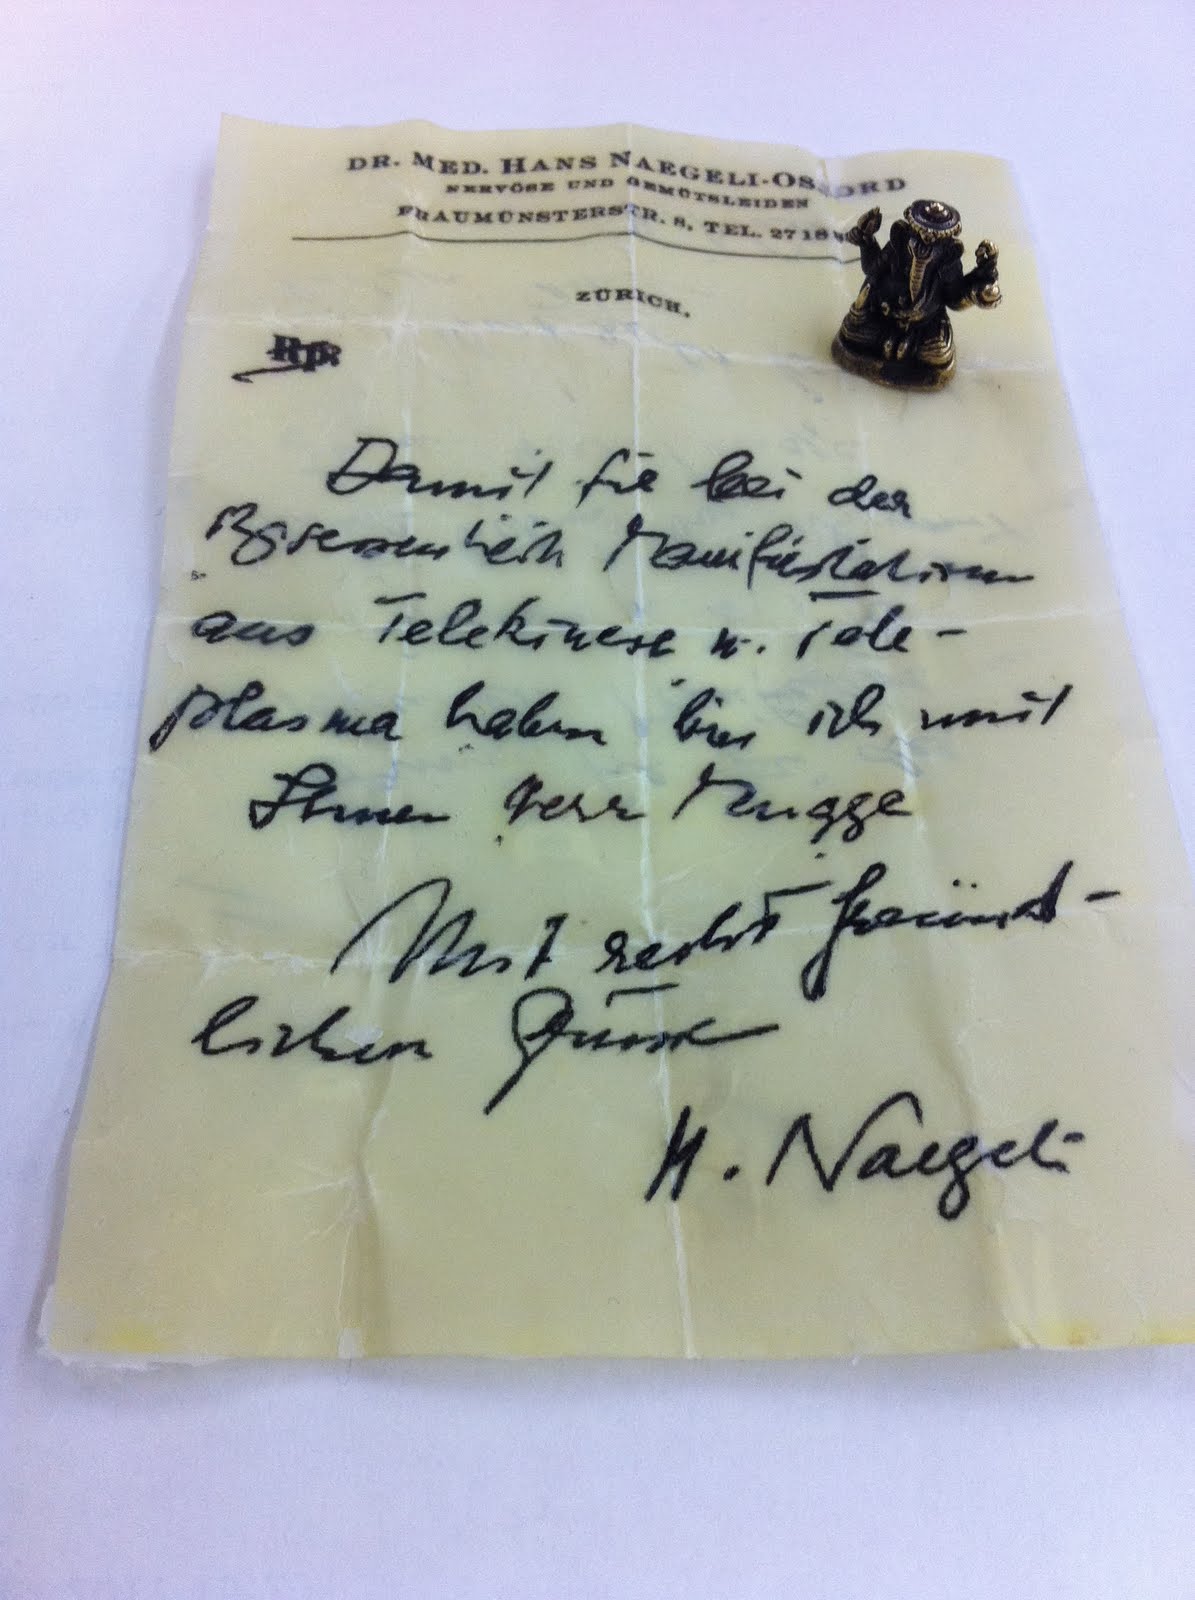 DR. MED. HANS NAEGELI-OS
NERVÖSE UND GEMÜTSLEIDEN
FRAUMÜNSTERSTR. 8, TEL. 27 18
ZÜRICH.
Rp.
Damit Sie bei der
Manifestationen
aus Telekinese u. Tele-
plasma haben bin ich mit
Ihnen Herr Mugge
Mit recht freund-
lichen
H. Naegeli